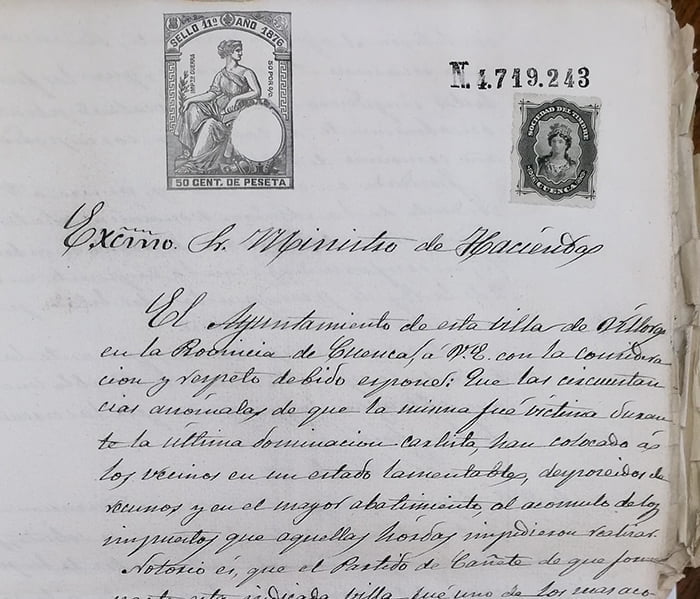 SELLO 11º AÑO 1876
IMPTO GUERRA
50 POR 0/0
50 CENT. DE PESETA
N. 4.719.243
SOCIEDAD DEL TIMBRE
CUENCA
Excmo. Sr. Ministro de Hacienda
El Ayuntamiento de esta villa de
en la Provincia de Cuenca, á V.E. con la considera
cion y respeto debido espone: Que las circuntan
cias anómalas de que la misma fué víctima duran
te la última dominacion carlista, han colocado á
los vecinos en un estado lamentable, desposeidos de
recursos y en el mayor abatimiento, al acumulo de los
impuestos que aquellas hórdas impidieron realizar.
Notorio es, que el Partido de Cañete de que forma
parte esta indicada villa fué uno de los mas aco